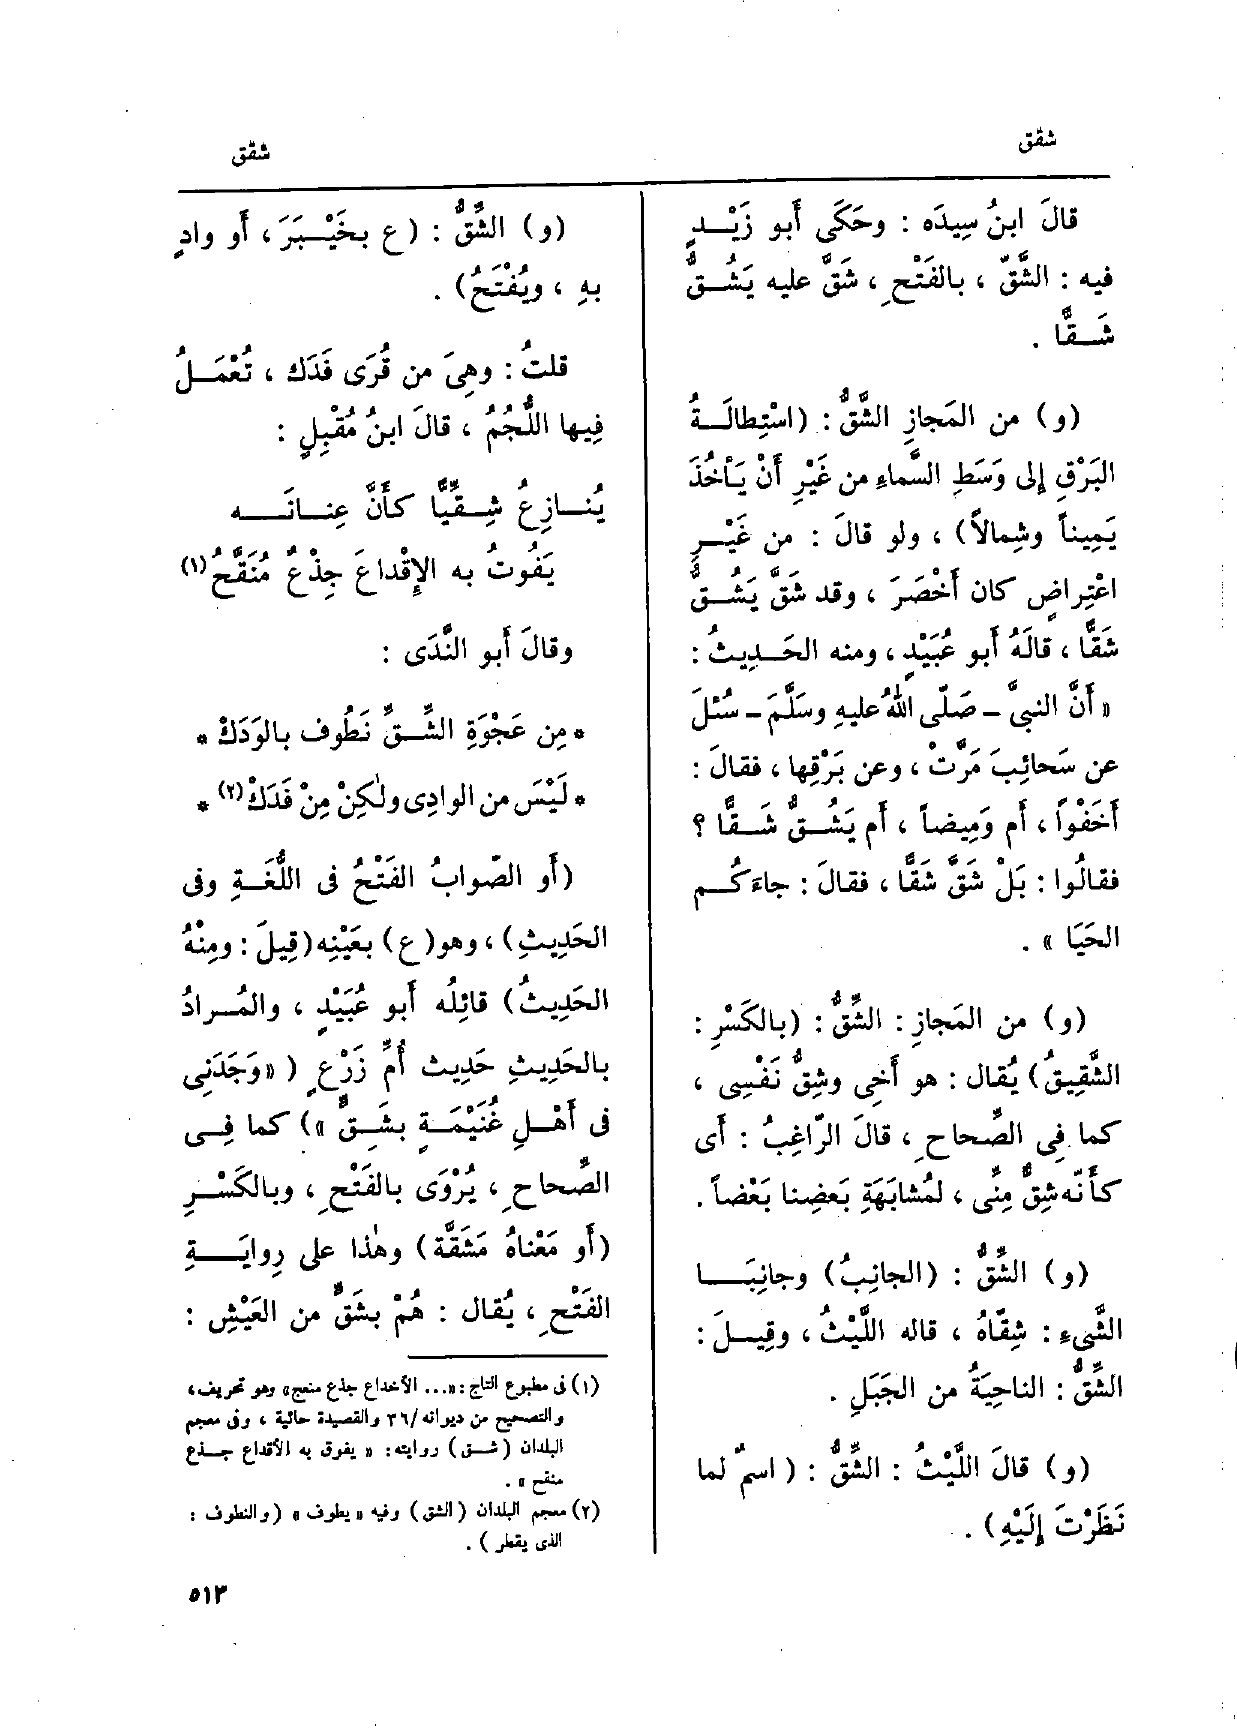 شقق
شقق
قالَ ابنُ سِيدَه : وحَكَى أَبو زَيْــدٍ
فيه : الشَّقّ ، بالفَتْحِ ، شَقَّ عليه يَشُــقُّ
شَــقًّا .
(و) من المَجازِ الشَّقُّ : (اسْتِطالَــةُ
البَرْقِ إِلى وَسَطِ السَّماءِ من غَيْرِ أَنْ يَأْخُذَ
يَمِيناً وشِمالاً) ، ولو قالَ : من غَيْــرِ
اعْتِراضٍ كان أَخْصَرَ ، وقد شَقَّ يَشُــقُّ
شَقًّا ، قالَهُ أَبو عُبَيْدٍ ، ومنه الحَــدِيثُ :
« أَنَّ النبيَّ ــ صَلَّى اللهُ عليهِ وسَلَّمَ ــ سُئلَ
عن سَحائِبَ مَرَّتْ ، وعن بَرْقِها ، فقالَ :
أَخَفْواً ، أَم وَمِيضاً ، أَم يَشُــقُّ شَــقًّا ؟
فقالُوا : بَلْ شَقَّ شَقًّا ، فقالَ : جاءَكُــم
الحَيَا » .
(و) من المَجازِ : الشِّقُّ : (بالكَسْرِ :
الشَّقِيقُ) يُقال : هو أَخِى وشِقُّ نَفْسِى ،
كما فِى الصِّحاحِ ، قالَ الرّاغِبُ : أَى
كأَنّه شِقٌّ مِنِّى ، لمُشابَهَةِ بَعضِنا بَعْضاً .
(و) الشِّقُّ : (الجانِبُ) وجانِبَــا
الشَّىءِ : شِقّاهُ ، قاله اللَّيْثُ ، وقِيــلَ :
الشِّقُّ : الناحِيَةُ من الجَبَلِ .
(و) قالَ اللَّيْثُ : الشِّقُّ : ( اسمٌ لما
نَظَرْتَ إِلَيْهِ) .
(و) الشِّقُّ : (ع بخَيْــبَرَ ، أَو وادٍ
بهِ ، ويُفْتَحُ) .
قلتُ : وهِىَ من قُرَى فَدَك ، تُعْمَــلُ
فِيها اللُّجُمُ ، قالَ ابنُ مُقْبِلٍ :
يُنــازِعُ شِــقِّيًّا كأَنَّ عِنــانَــه
يَفُوتُ به الإِقْداعَ جِذْعٌ مُنَقَّحُ (١)
وقالَ أَبو النَّدَى :
* مِن عَجْوَةِ الشِّــقِّ نَطُوف بالوَدَكْ *
* لَيْسَ من الوادِى ولٰكِنْ مِنْ فَدَكْ (٢) *
(أَو الصَّوابُ الفَتْحُ فى اللُّغَــةِ وفى
الحَدِيثِ) ، وهو (ع) بعَيْنِه (قِيلَ : ومِنْهُ
الحَدِيثُ) قائِلُه أَبو عُبَيْدٍ ، والمُــرادُ
بالحَدِيثِ حَدِيث أُمِّ زَرْعٍ ( «وَجَدَنِى
فى أَهْــلِ غُنَيْمَــةٍ بشَــقٍّ ») كما فِــى
الصِّحاحِ ، يُرْوَى بالفَتْحِ ، وبالكَسْــرِ
(أَو مَعْناهُ مَشَقَّة) وهٰذا على رِوايَــةِ
الفَتْحِ ، يُقال : هُمْ بشَقٍّ من العَيْشِ :
(١) فى مطبوع التاج : «... الأخداع جذع منعج» وهو تحريف ،
والتصحيح من ديوانه /٣٦ والقصيدة حائية ، وفى معجم
البلدان (شــق) روايته : « يفوق به الأقداع جــذع
منقح » .
(٢) معجم البلدان (الشق) وفيه « يطوف » (والنطوف :
الذى يقطر ) .
٥١٣